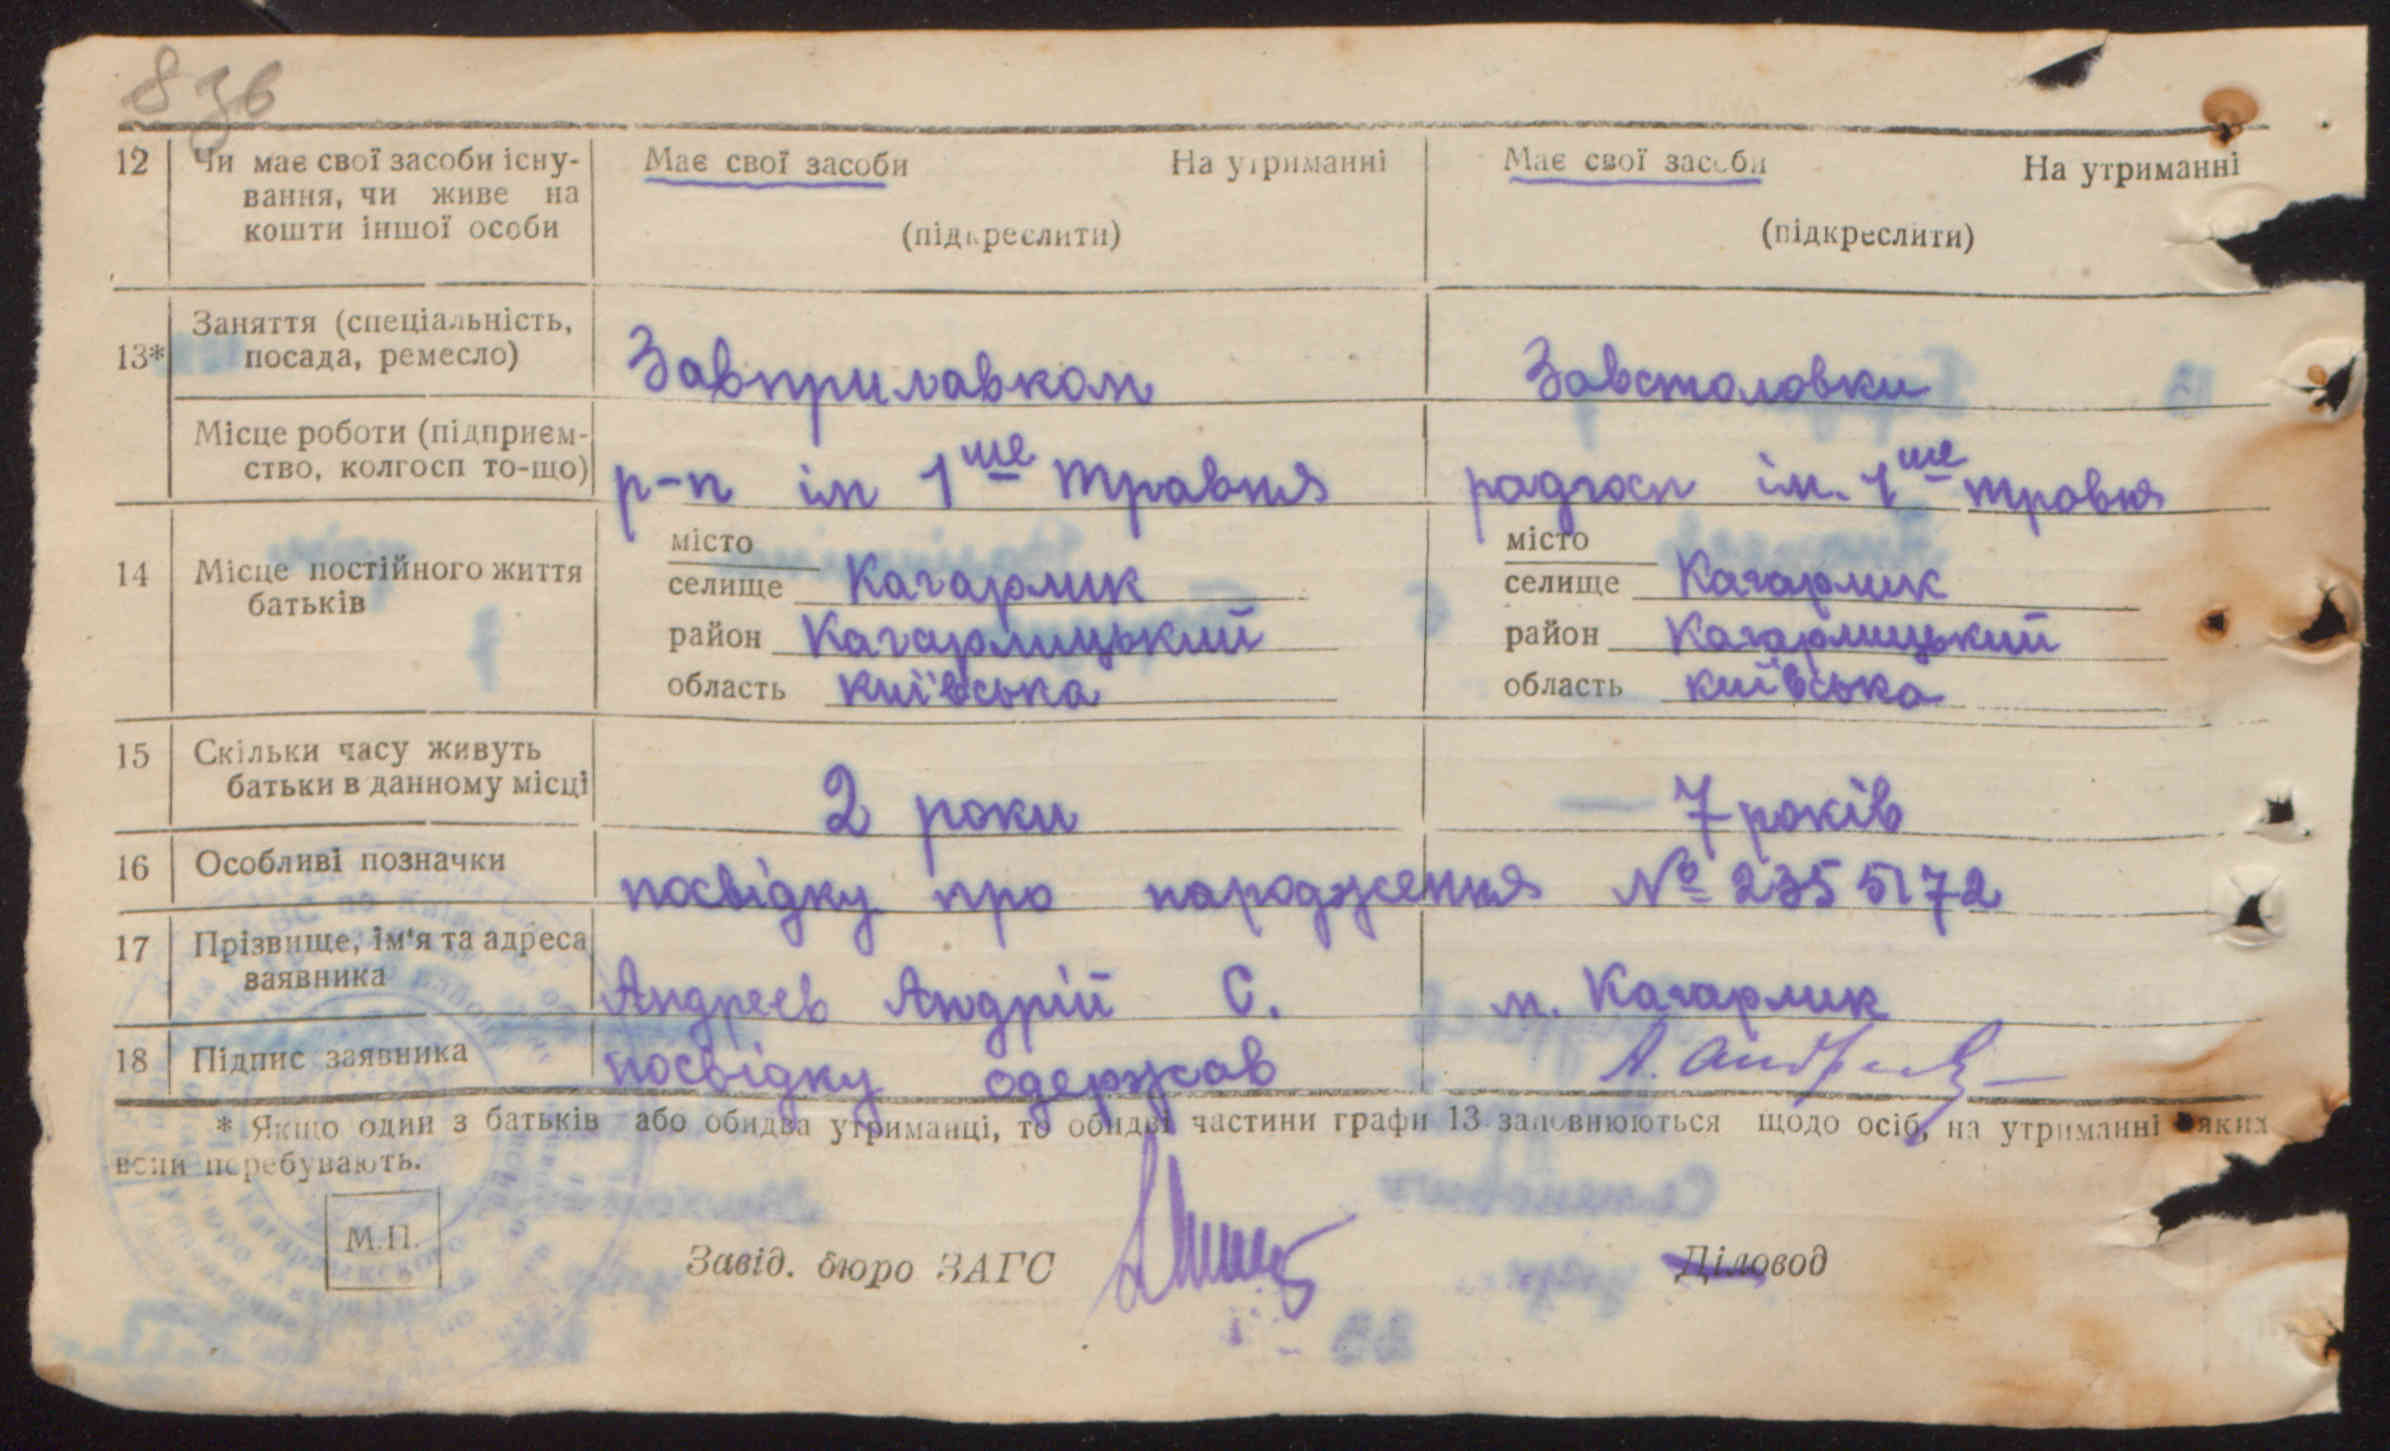 836
12 Чи має свої засоби існу- Має свої засоби На утриманні Має свої засоби На утриманні
вання, чи живе на
кошти іншої особи (підкреслити) (підкреслити)
Заняття (спеціальність,
13* посада, ремесло) Завприлавком Завстоловки
Місце роботи (підприєм-
ство, колгосп то-що) р-п ім 1ше травня радгосп ім. 1ше травня
місто місто
14 Місце постійного життя селище Кагарлик селище Кагарлик
батьків
район Кагарлицький район Кагарлицький
область київська область київська
15 Скільки часу живуть
батьки в данному місці 2 роки 7 років
16 Особливі позначки посвідку про народження № 2355172
17 Прізвище, ім'я та адреса
заявника Андреєв Андрій С. м. Кагарлик
18 Підпис заявника посвідку одержав А. Андреев
* Якщо один з батьків або обидва утриманці, то обидві частини графи 13 заповнюються щодо осіб, на утриманні яких
вони перебувають.
М.П.
Завід. бюро ЗАГС Діловод